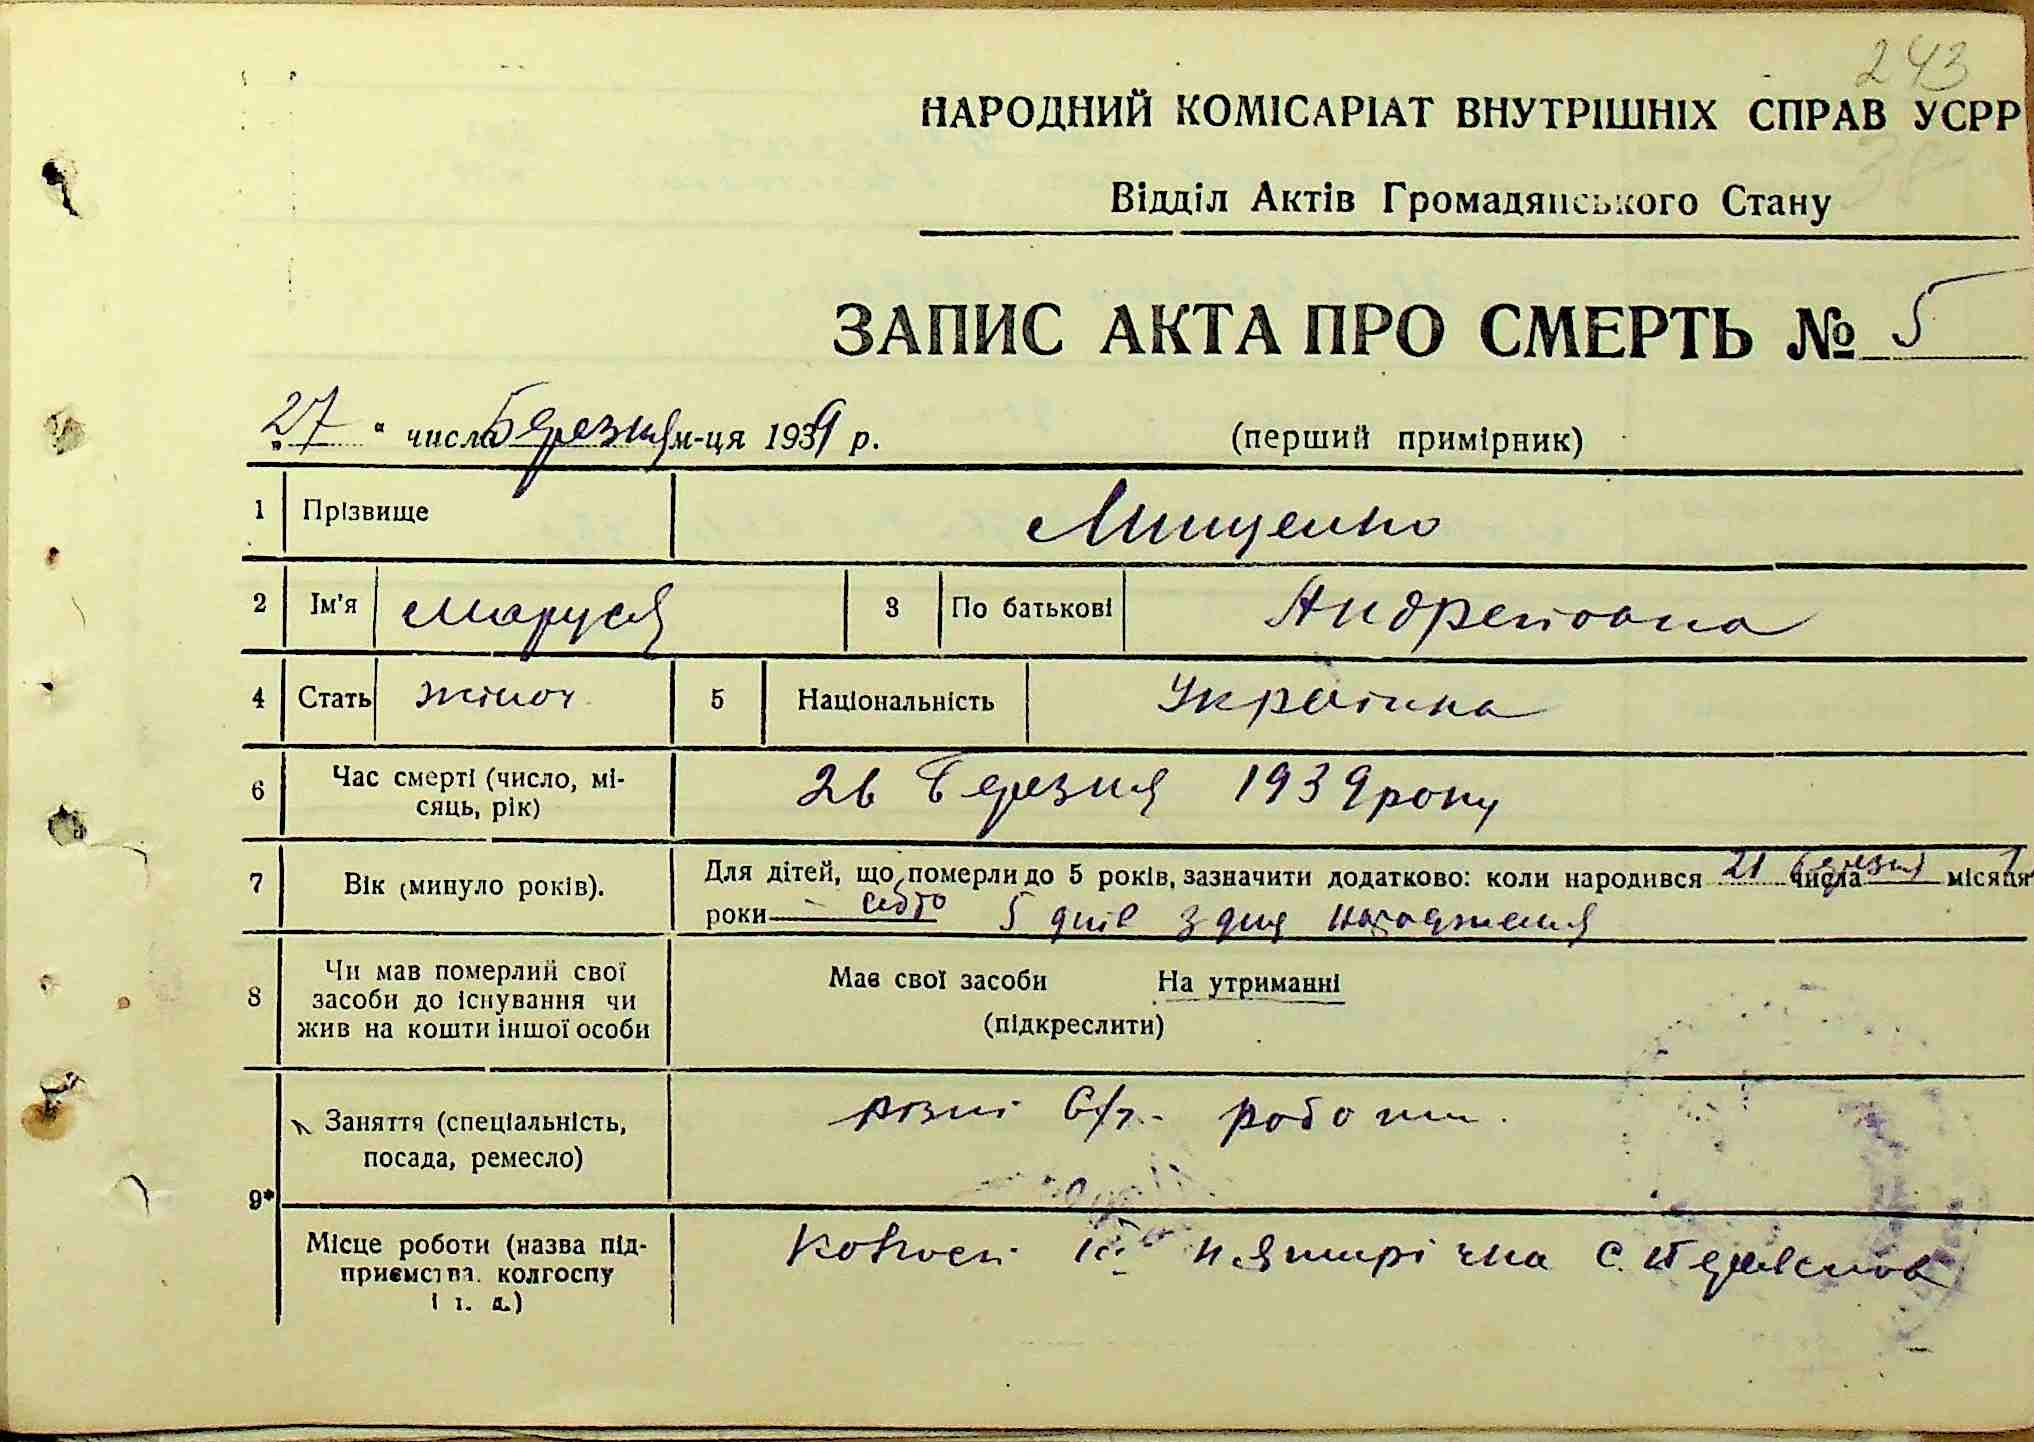 243
НАРОДНИЙ КОМІСАРІАТ ВНУТРІШНІХ СПРАВ УСРР
38
Відділ Актів Громадянського Стану
ЗАПИС АКТА ПРО СМЕРТЬ № 5
„27“ числа Березня м-ця 1939 р. (перший примірник)
1 Прізвище Мищенко
2 Ім'я Маруся 3 По батькові Андреївна
4 Стать жіноч 5 Національність Українка
6 Час смерті (число, мі-
сяць, рік) 26 Березня 1939 року
7 Вік (минуло років). Для дітей, що померли до 5 років, зазначити додатково: коли народився 21 числа березня місяця
роки - 5 днів з дня народження
8 Чи мав померлий свої
засоби до існування чи
жив на кошти іншої особи
Має свої засоби На утриманні
(підкреслити)
9*
Заняття (спеціальність,
посада, ремесло) різні с/г. роботи.
Місце роботи (назва під-
приємства, колгоспу
і т. д.) Колгосп ІІ п'ятирічка с.